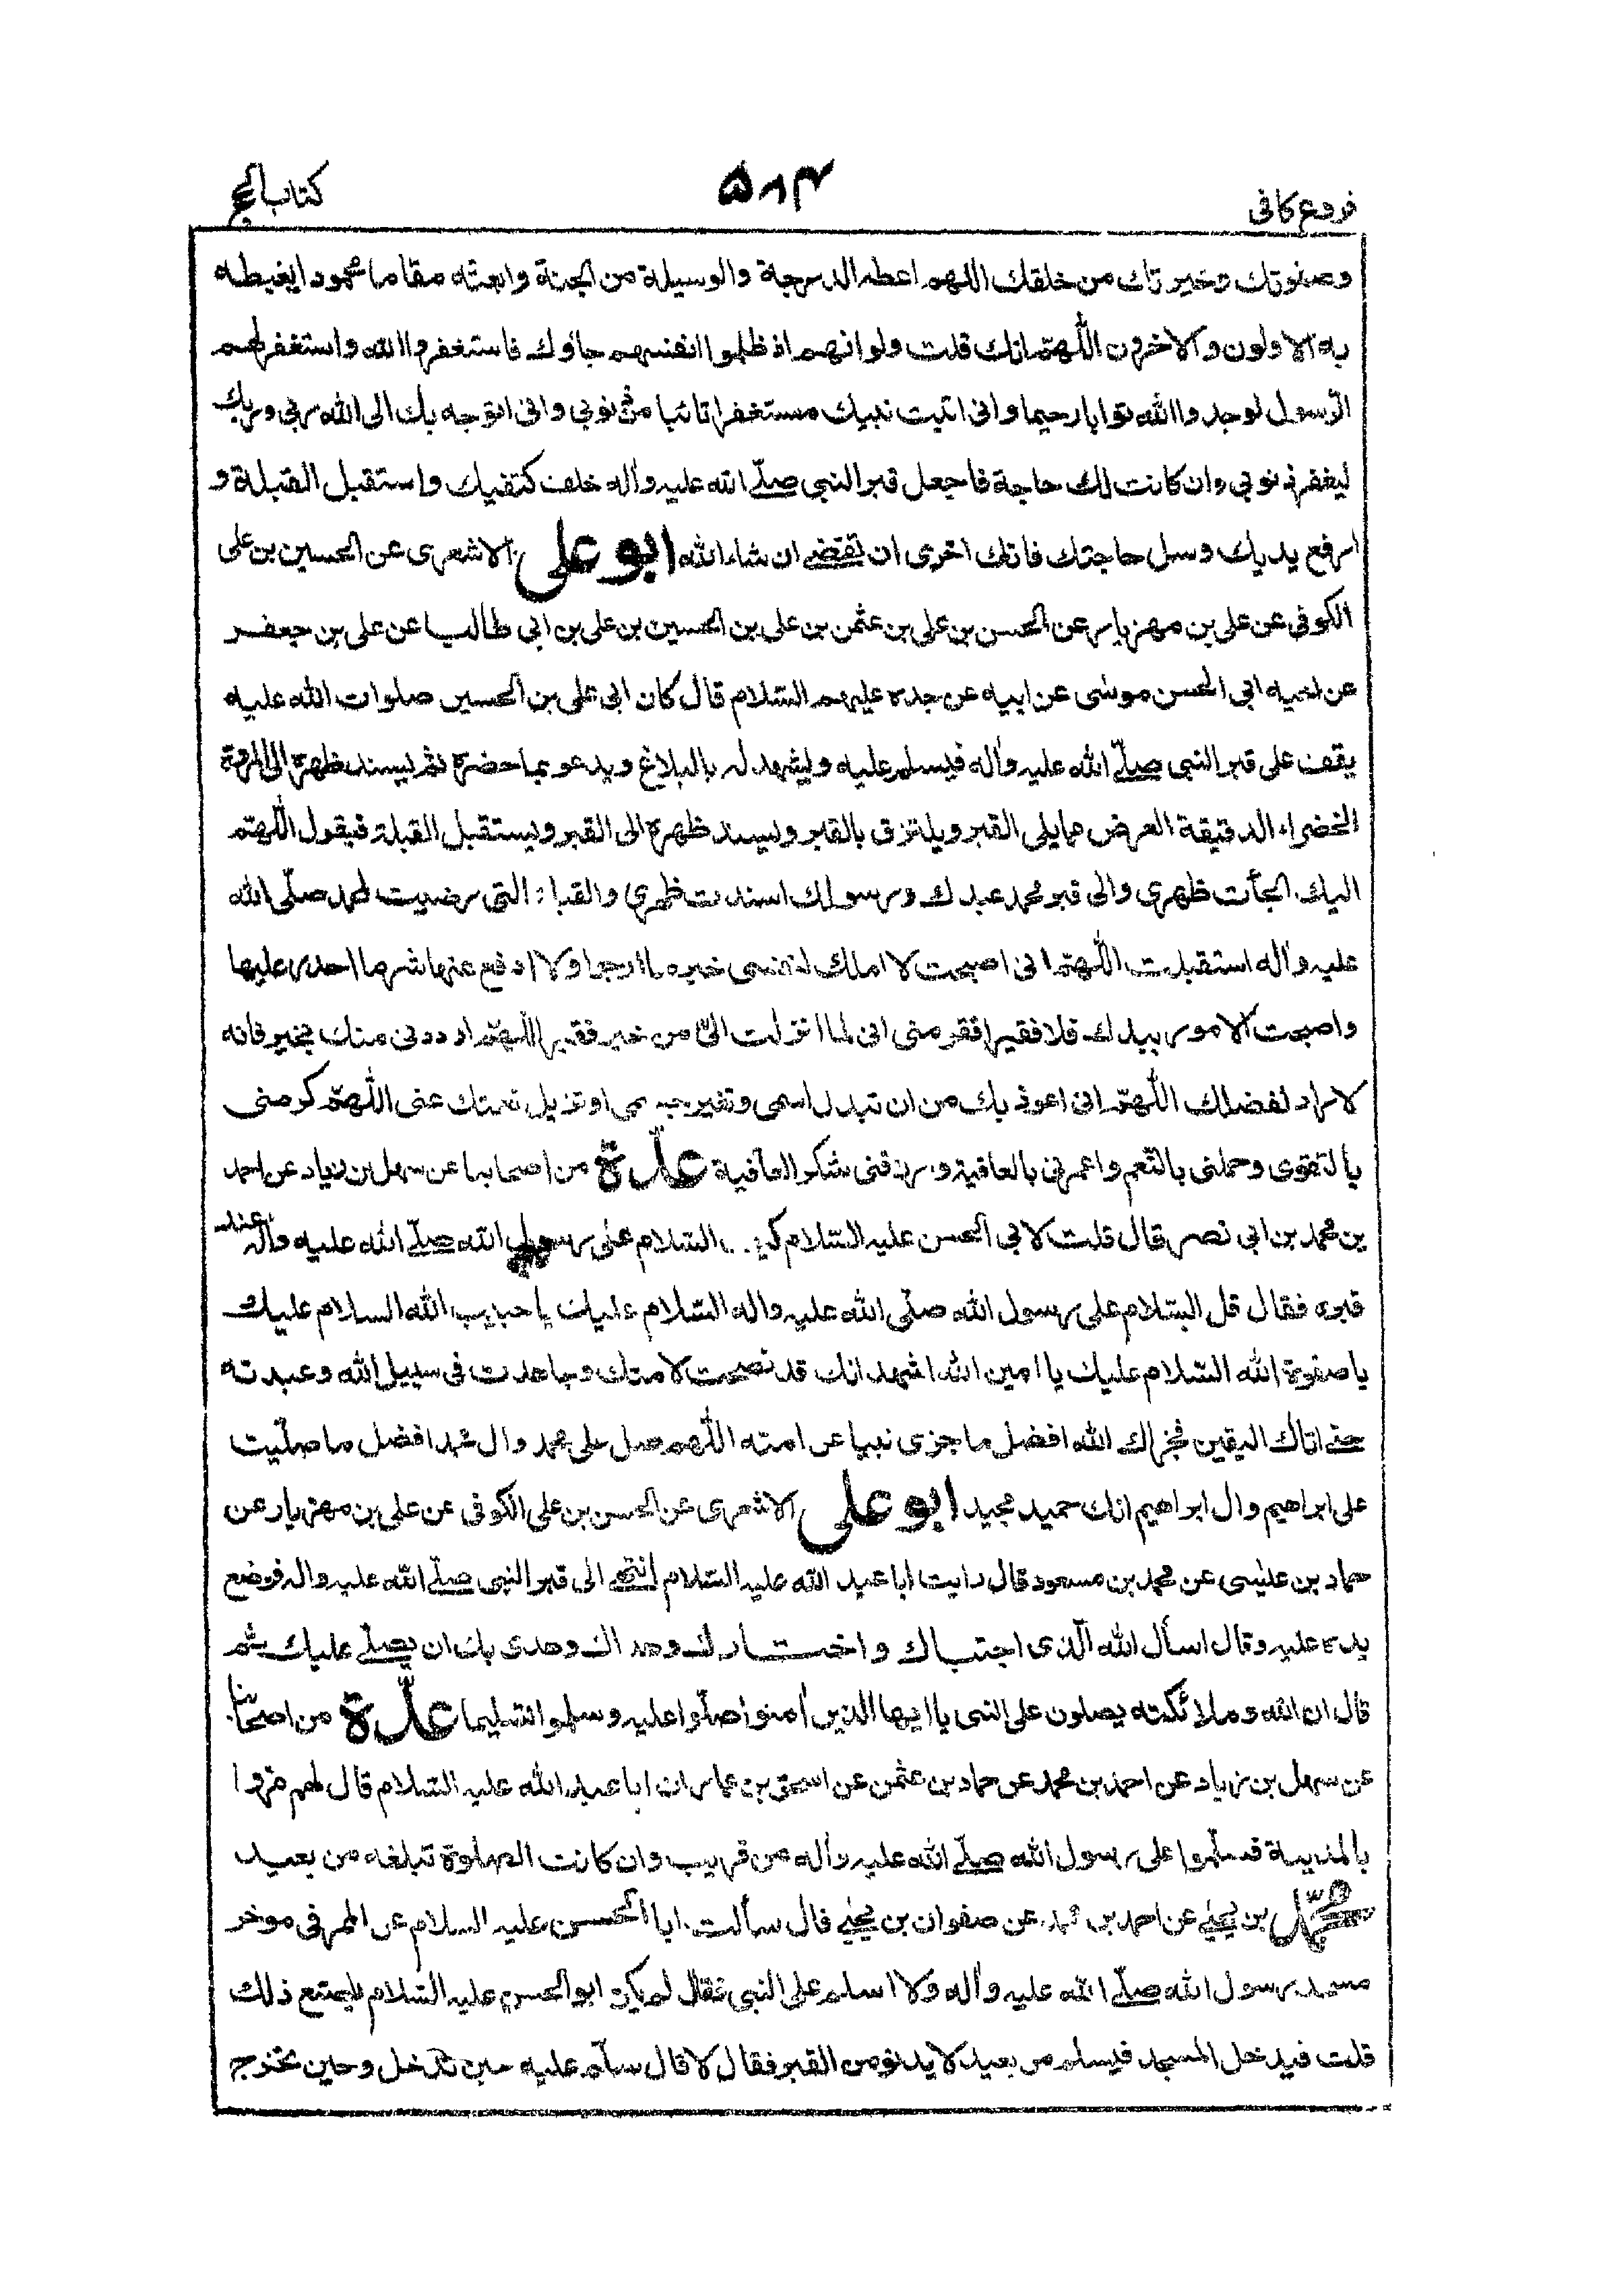 فروع كافى
۵۸۴
كتاب الحج
وصفوتك وخيرتك من خلقك اللهم اعطه الدرجة والوسيلة من الجنة وابعثه مقاما محمودا يغبطه
به الاولون والاخرون اللّهمّ انك قلت ولو انهم اذ ظلموا انفسهم جاؤك فاستغفروا الله واستغفر لهم
الرّسول لوجدوا الله توابا رحيما وانى اتيت نبيك مستغفرا تائبا من ذنوبي وانى اتوجه بك الى الله ربي وربك
ليغفر ذنوبي وان كانت لك حاجة فاجعل قبر النبي صلّے الله عليه وآله خلف كتفيك واستقبل القبلة و
ارفع يديك وسل حاجتك فانك احرى ان تقضے ان شاء الله ابو على الاشعرى عن الحسين بن على
الكوفى عن على بن مهزيار عن الحسن بن على بن عثمن بن على بن الحسين بن على بن ابي طالب عن على بن جعفر
عن اخيه ابى الحسن موسى عن ابيه عن جده عليهم السّلام قال كان ابى على بن الحسين صلوات الله عليه
يقف على قبر النبى صلّے الله عليه وآله فيسلم عليه وليشهد له بالبلاغ ويدعو بما حضره ثم يسند ظهره الى المروة
الخضراء الدقيقة العرض مما يلى القبر ويلتزق بالقبر ويسند ظهره الى القبر ويستقبل القبلة فيقول اللّهمّ
اليك الجأت ظهري والى قبر محمد عبدك ورسولك اسندت ظهري والقبلة التى رضيت لمحمد صلّى الله
عليه وآله استقبلت اللّهمّ انى اصبحت لا املك لنفسى خير ما ارجو ولا ادفع عنها شر ما احذر عليها
واصبحت الامور بيدك فلا فقير افقر منى انى لما انزلت الىّ من خير فقير اللّهمّ ارددنى منك بخير فانه
لا راد لفضلك اللّهمّ انى اعوذ بك من ان تبدل اسمى وتغير جسمى او تزيل نعمتك عنى اللّهمّ كرمنى
بالتقوى وجملنى بالنّعم واعمرنى بالعافية وارزقنى شكر العافية عدّة من اصحابنا عن سهل بن زياد عن احمد
بن محمد بن ابى نصر قال قلت لابي الحسن عليه السّلام السّلام على رسول الله صلّے الله عليه وآله عند
قبره فقال قل السّلام على رسول الله صلّى الله عليه واله السّلام عليك يا حبيب الله السلام عليك
يا صفوة الله السّلام عليك يا امين الله اشهد انك قد نصحت لامتك وجاهدت فى سبيل الله وعبدته
حتے اتاك اليقين فجزاك الله افضل ما جزى نبيا عن امته اللّهم صل على محمد وال محمد افضل ما صلّيت
على ابراهيم وال ابراهيم انك حميد مجيد ابو على الاشعرى عن الحسن بن على الكوفى عن على بن مهزيار عن
حماد بن عليسى عن محمد بن مسعود قال رايت ابا عبد الله عليه السّلام انتهے الى قبر النبى صلّے الله عليه واله فوضع
يده عليه وقال اسأل الله الّذى اجتباك واختارك وهداك وهدى بك ان يصلّے عليك ثم
قال ان الله وملائكته يصلون على النبى يا ايها الذين آمنوا صلّوا عليه وسلموا تسليما عدّة من اصحابنا
عن سهل بن زياد عن احمد بن محمد عن حماد بن عثمن عن اسحق بن عمار ان ابا عبد الله عليه السّلام قال لهم مروا
بالمدينة فسلّموا على رسول الله صلّے الله عليه وآله من قريب وان كانت الصلٰوة تبلغه من بعيد
محمّد بن يحيٰے عن احمد بن محمد عن صفوان بن يحيٰے قال سألت ابا الحسن عليه السلام عن الممر فى موخر
مسجد رسول الله صلّے الله عليه وآله ولا اسلم على النبى فقال لم يكن ابو الحسن عليه السّلام يصنع ذلك
قلت فيدخل المسجد فيسلم من بعيد لا يدنو من القبر فقال لا قال سلّم عليه حين تدخل وحين تخرج